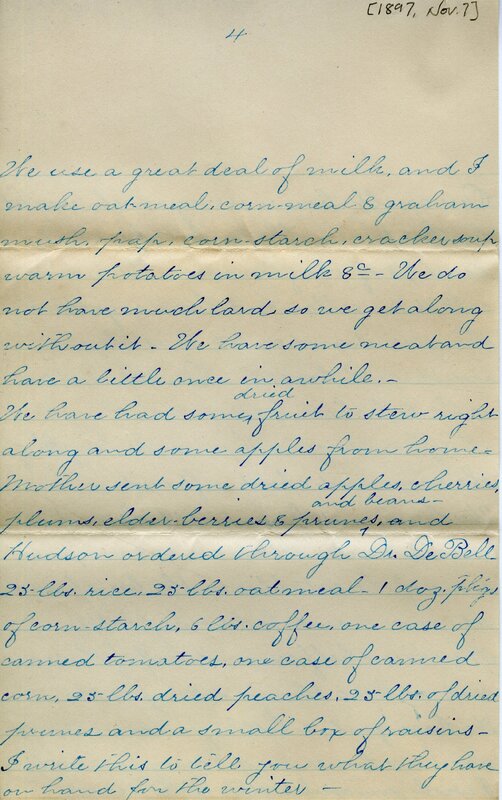 [1897, Nov. 7]
4
We use a great deal of milk, and I
make oat-meal, corn-meal & graham
mush, pap, corn-starch, cracker soup
warm potatoes in milk &c - We do
not have much lard so we get along
without it - We have some meat and
have a little once in awhile. -
dried
We have had some fruit to stew right
along and some apples from home -
Mother sent some dried apples, cherries,
and beans -
plums, elder-berries & prunes, and
Hudson ordered through Dr. De Bell
25-lbs. rice, 25-lbs. oat meal - 1 doz. pkgs
of corn-starch, 6 lbs. coffee, one case of
canned tomatoes, one case of canned
corn, 25-lbs. dried peaches, 25-lbs. of dried
prunes and a small box of raisins -
I write this to tell you what they have
on hand for the winter -